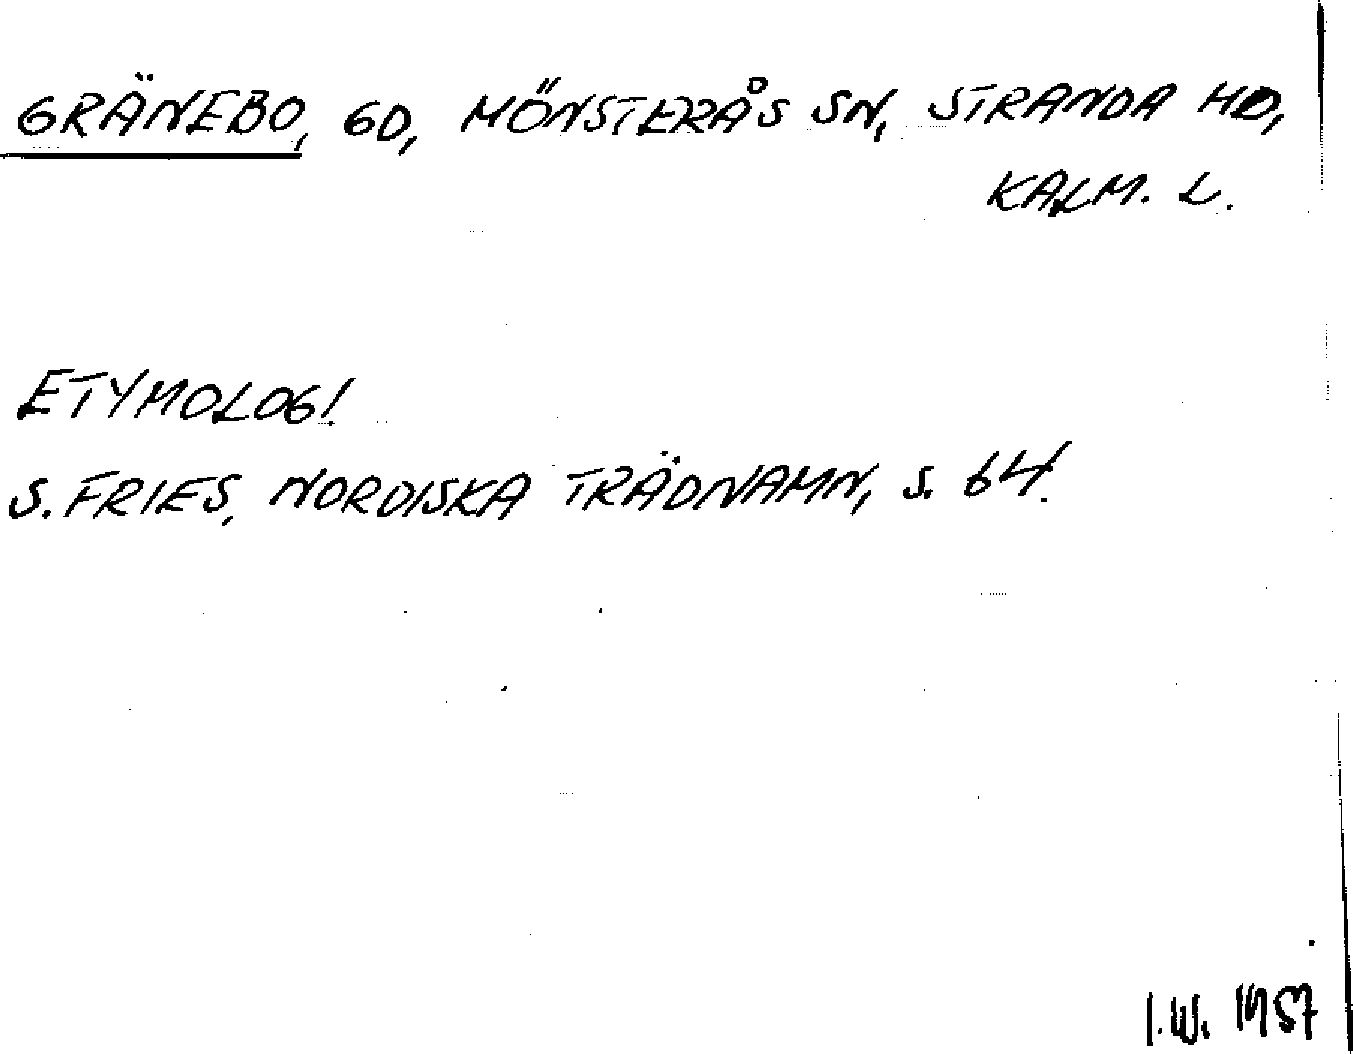 GRÄNEBO, GD, MÖNSTERÅS SN, STRANDA HD,
KALM. L.
ETYMOLOGI
S. FRIES, NORDISKA TRÄDNAMN, S. 64.
I.W. 1957